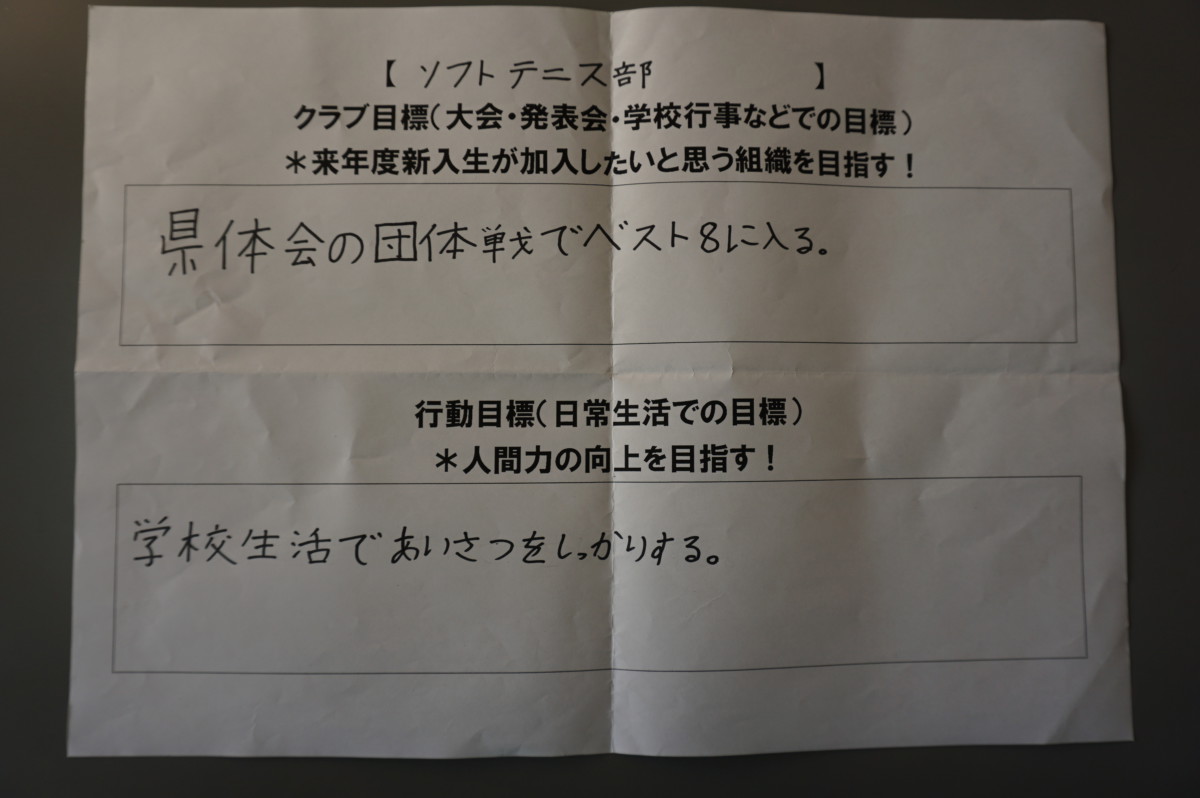 【 ソフトテニス部 】
クラブ目標(大会・発表会・学校行事などでの目標)
＊来年度新入生が加入したいと思う組織を目指す！
県体会の団体戦でベスト8に入る。
行動目標(日常生活での目標)
＊人間力の向上を目指す！
学校生活であいさつをしっかりする。